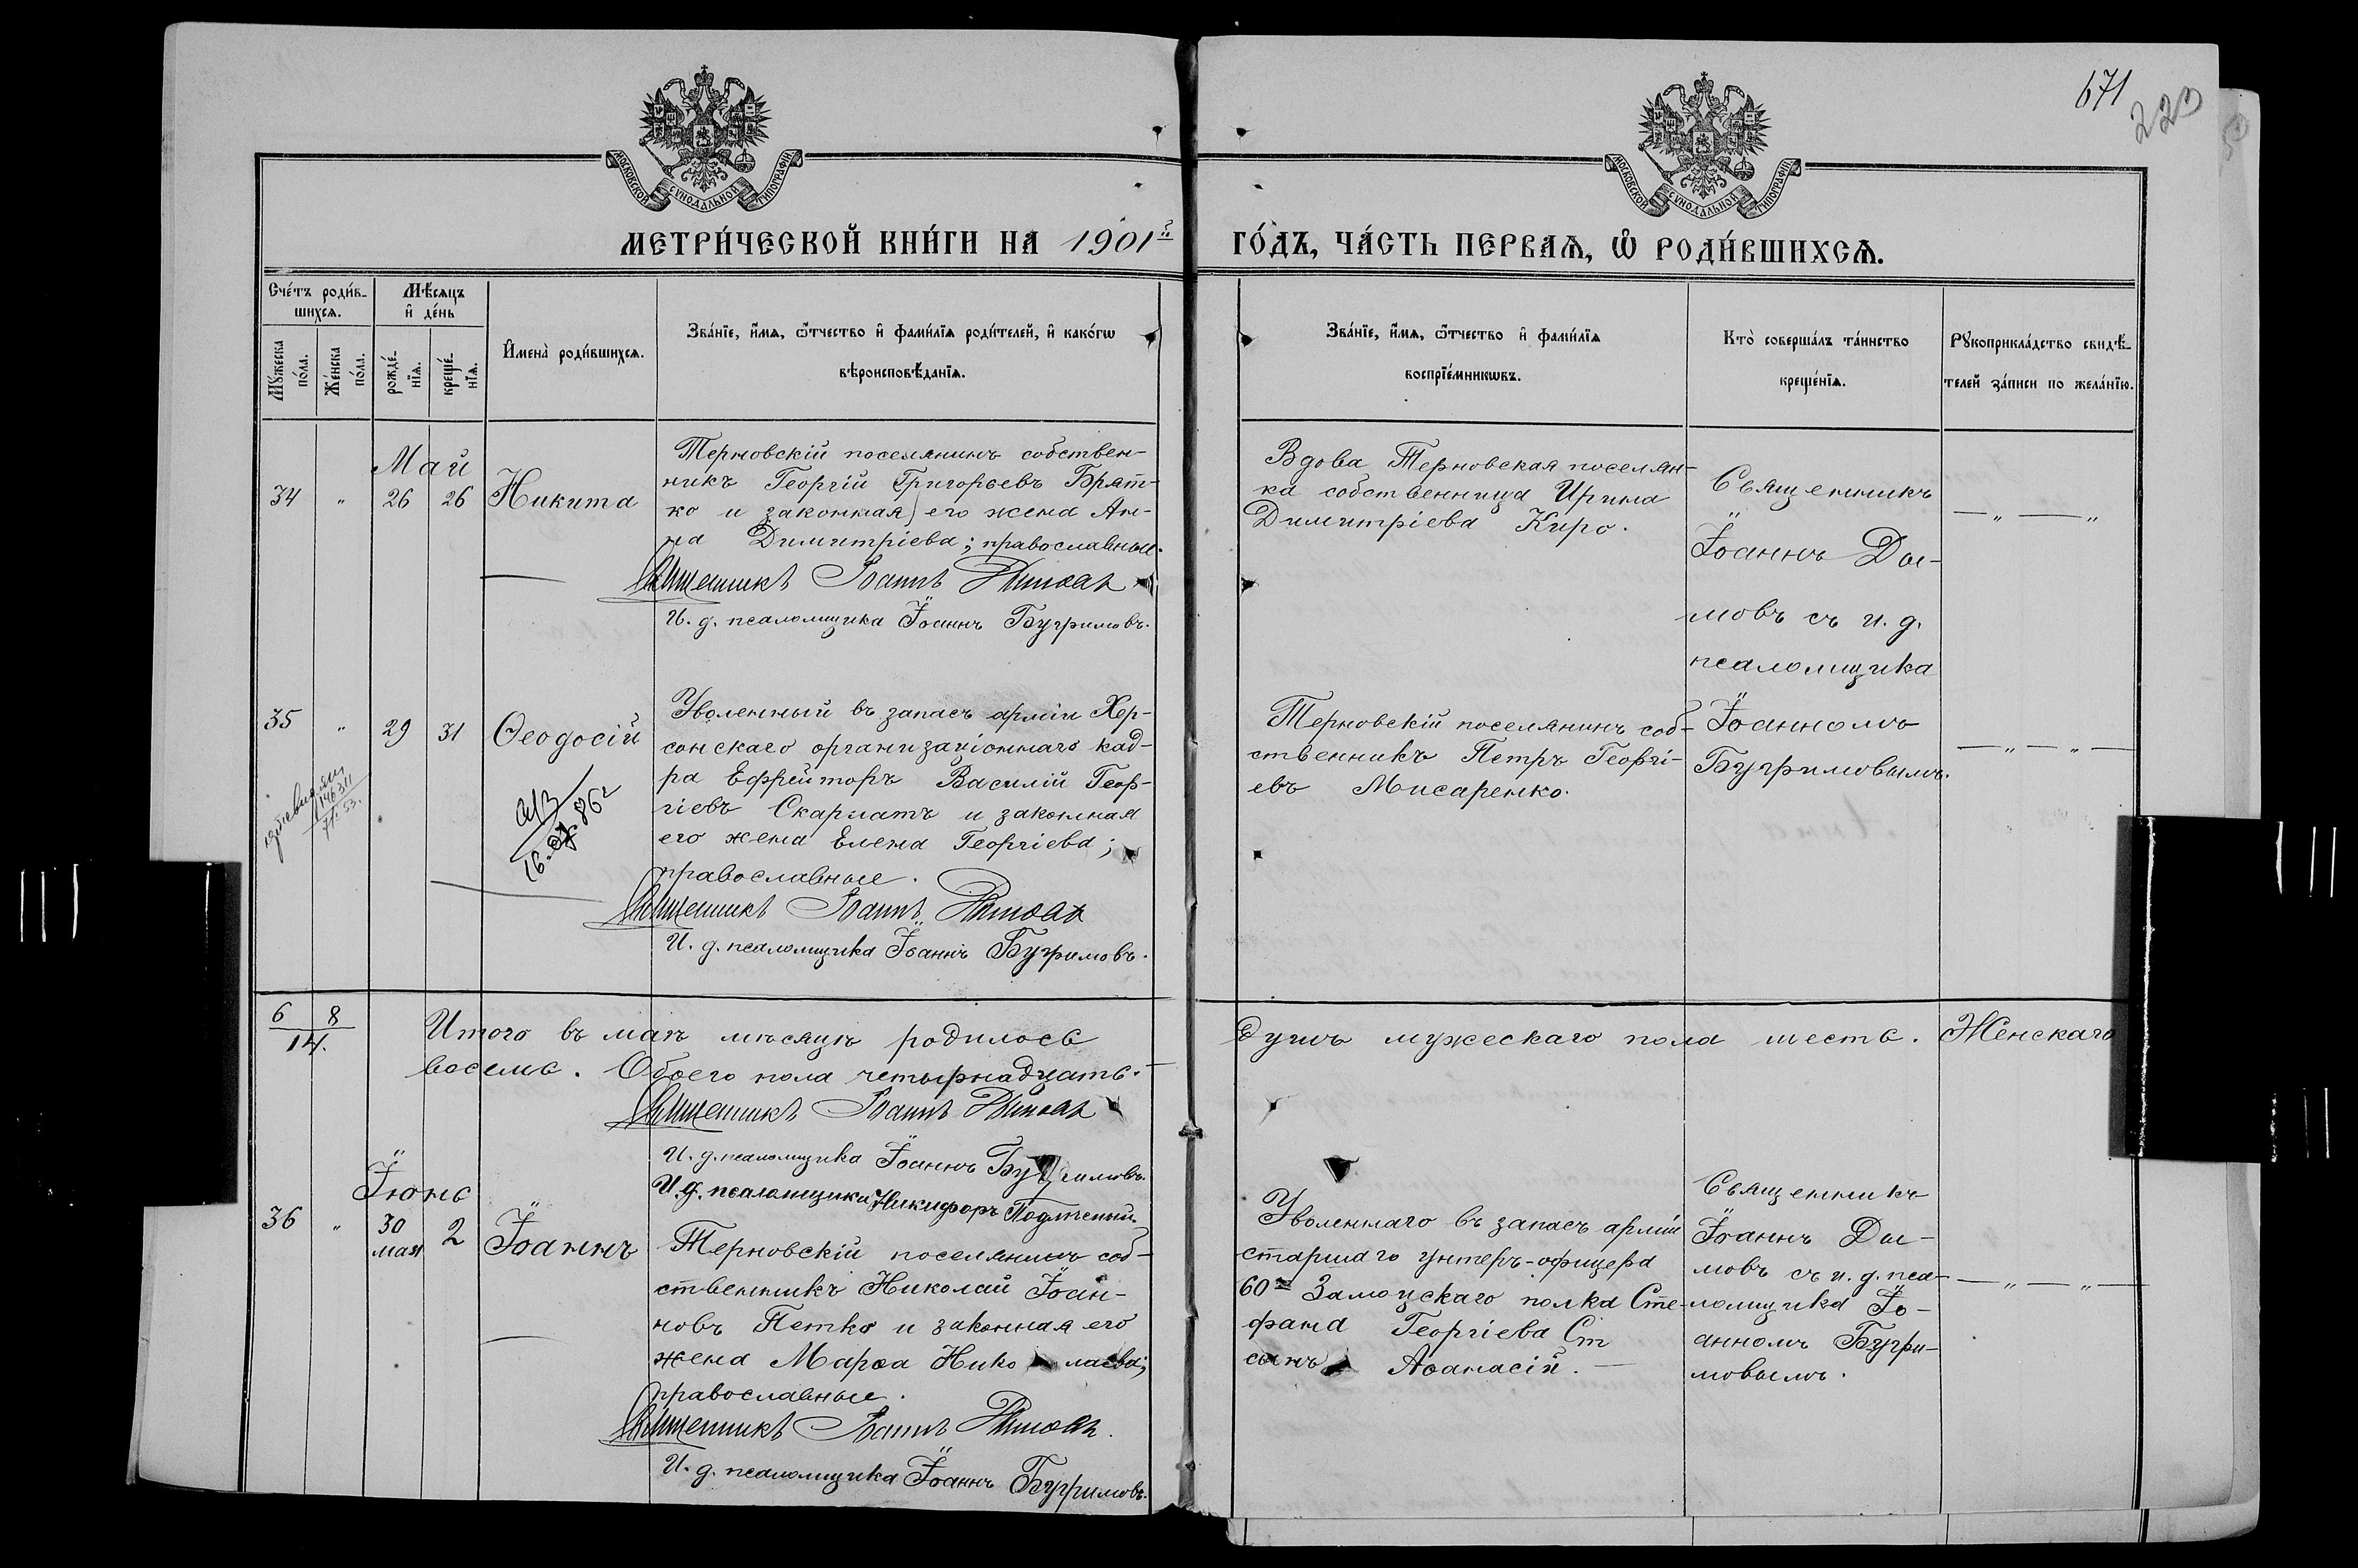 671
220
МОСКОВСКОЙ СѴНОДАЛЬНОЙ ТИПОГРАФІИ
МОСКОВСКОЙ СѴНОДАЛЬНОЙ ТИПОГРАФІИ
МЕТРИ́ЧЕСКОЙ КНИ́ГИ НА 1901й ГО́ДЪ, ЧА́СТЬ ПЕРВАѦ, Ѡ РОДИ́ВШИХСѦ.
Сче́тъ роди́в-
шихсѧ.
Мꙋжеска
по́ла.
Же́нска
по́ла.
Мѣ́сѧцъ
и де́нь
рожде́-
нїѧ.
креще́-
нїѧ.
Имена̀ роди́вшихсѧ.
Зва́нїе, и́мѧ, ѻ́тчество и фами́лїѧ роди́телей, и како́гѡ
вѣроисповѣ́данїѧ.
Зва́нїе, и́мѧ, ѻ́тчество и фами́лїѧ
воспрїе́мникѡвъ.
Кто̀ соверша́лъ та́инство
креще́нїѧ.
Рꙋкоприкла́дство свидѣ́-
телей за́писи по жела́нїю.
Май
34 " 26 26 Никита
Терновскій поселянинъ собствен-
никъ Георгій Григорьевъ Брат-
ко и законная его жена Ан-
на Димитріева; православные.
Священникъ Іоаннъ Дымовъ
И. д. псаломщика Іоаннъ Бугримовъ.
Вдова Терновская поселян-
ка собственница Ирина
Димитріева Киро.
Священникъ
Іоаннъ Ды-
мовъ съ и. д.
псаломщика
Іоанномъ
Бугримовымъ.
— " — "
35 " 29 31 Ѳеодосій
Уволенный въ запасъ арміи Хер-
сонскаго организаціоннаго кад-
ра Ефрейторъ Василій Геор-
гіевъ Скарлатъ и законная
его жена Елена Георгіева;
православные.
Священникъ Іоаннъ Дымовъ
И. д. псаломщика Іоаннъ Бугримовъ.
Терновскій поселянинъ соб-
ственникъ Петръ Георгі-
евъ Мисаренко.
— " — " —
6 8
14.
Итого въ маѣ мѣсяцѣ родилось душъ мужескаго пола шесть. Женскаго
восемь. Обоего пола четырнадцать.
Священникъ Іоаннъ Дымовъ
И. д. псаломщика Іоаннъ Бугримовъ.
И. д. псаломщика Никифоръ
Іюнь
36 " 30 мая 2 Іоаннъ
Терновскій поселянинъ соб-
ственникъ Николай Іоан-
новъ Петко и законная его
жена Марѳа Николаева;
православные.
Священникъ Іоаннъ Дымовъ.
И. д. псаломщика Іоаннъ Бугримовъ.
Уволеннаго въ запасъ арміи
старшаго унтеръ-офицера
60го Замоцскаго полка Сте-
фана Георгіева Ст
сынъ Аѳанасій. —
Священникъ
Іоаннъ Ды-
мовъ съ и. д. пса-
ломщика Іо-
анномъ Бугри-
мовымъ.
— " — " —